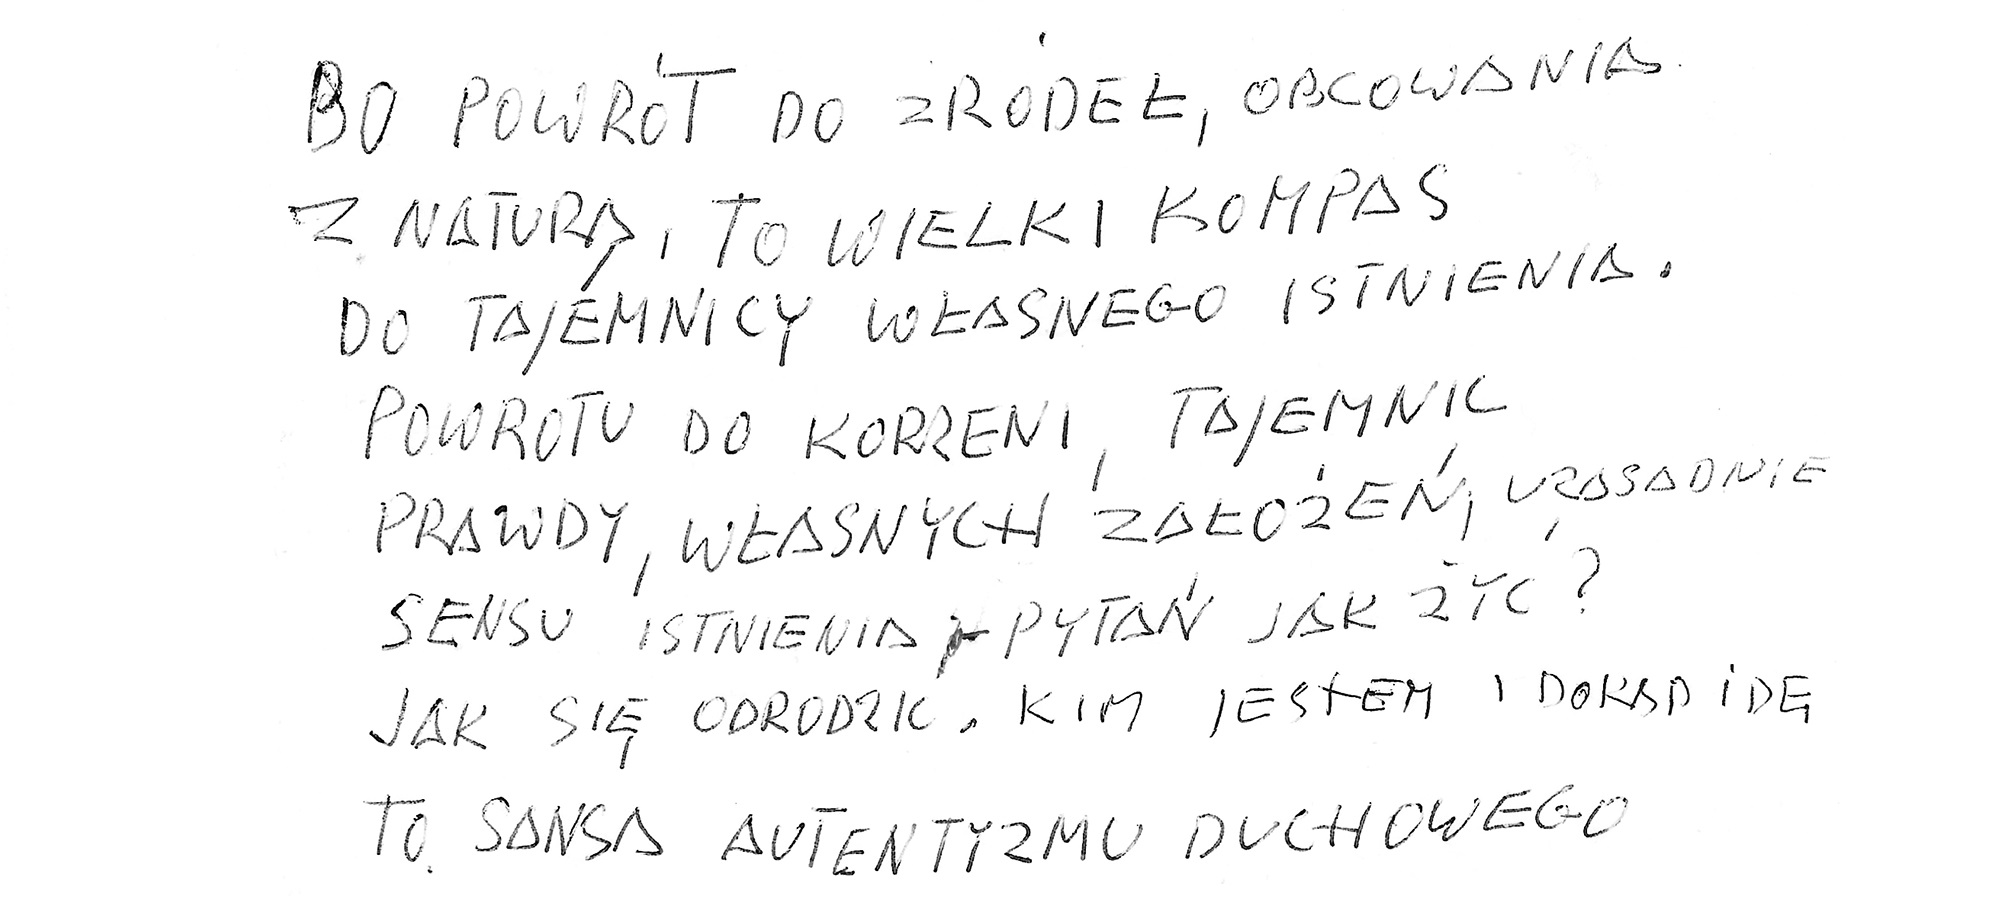 BO POWRÓT DO ŹRÓDEŁ, OBCOWANIA
Z NATURĄ, TO WIELKI KOMPAS
DO TAJEMNICY WŁASNEGO ISTNIENIA.
POWROTU DO KORZENI, TAJEMNIC
PRAWDY, WŁASNYCH ZAŁOŻEŃ, UZASADNIE
SENSU ISTNIENIA PYTAŃ JAK ŻYC?
JAK SIĘ ODRODZIĆ. KIM JESTEM I DOKĄD IDĘ
TO SANSA AUTENTYZMU DUCHOWEGO